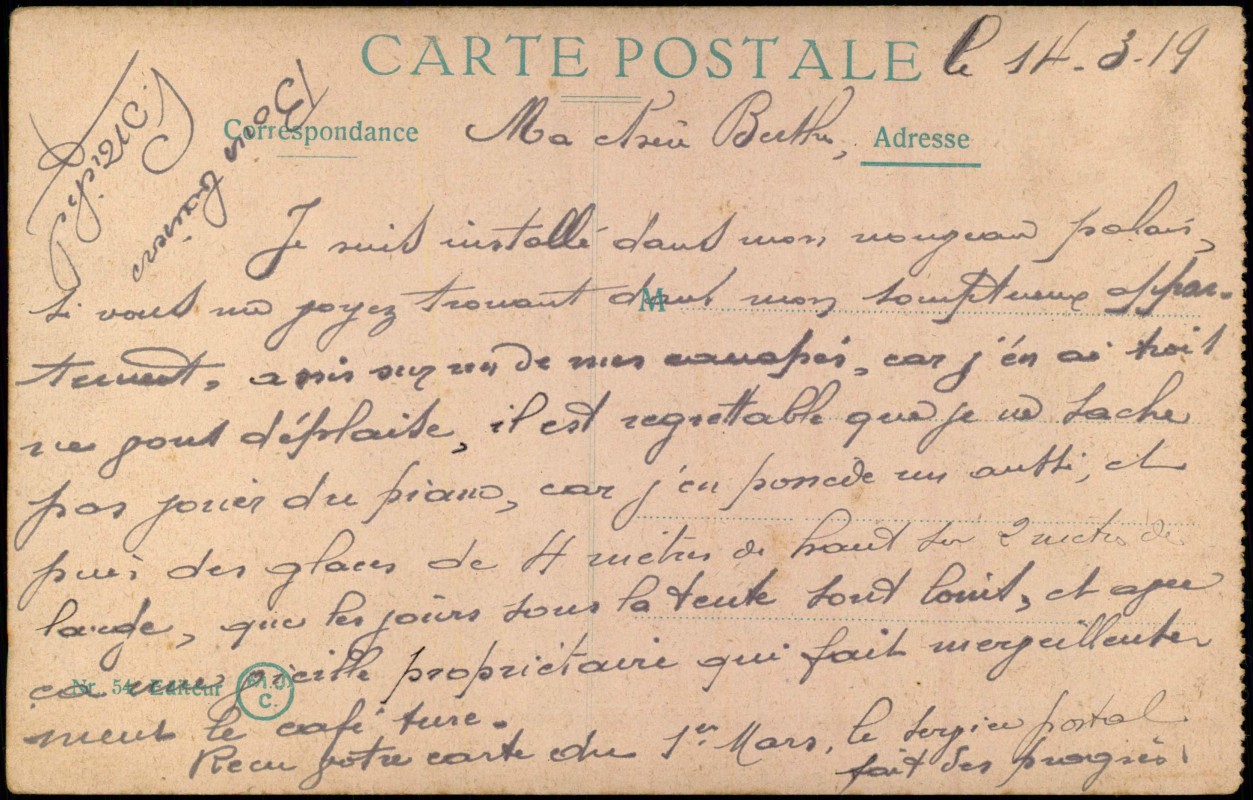 CARTE POSTALE
le 14-3-19
Correspondance
Adresse
Ma chère Berthe,
Je suis installé dans mon nouveau palais,
si vous me voyez tronant dans mon somptueux appar-
tement, assis sur un de mes canapés, car j'en ai trois
ne vous déplaise, il est regrettable que je ne sache
pas jouer du piano, car j'en possède un aussi, et
puis des glaces de 4 mètres de haut sur 2 mètres de
large, que les jours sous la tente sont loins, et avec
ça une vieille propriétaire qui fait merveilleuse-
ment le café turc.
Recu votre carte du 1er Mars, le service postal
fait des progrès!
Bons baisers
M
Nr. 54 Editeur
M.J.C.